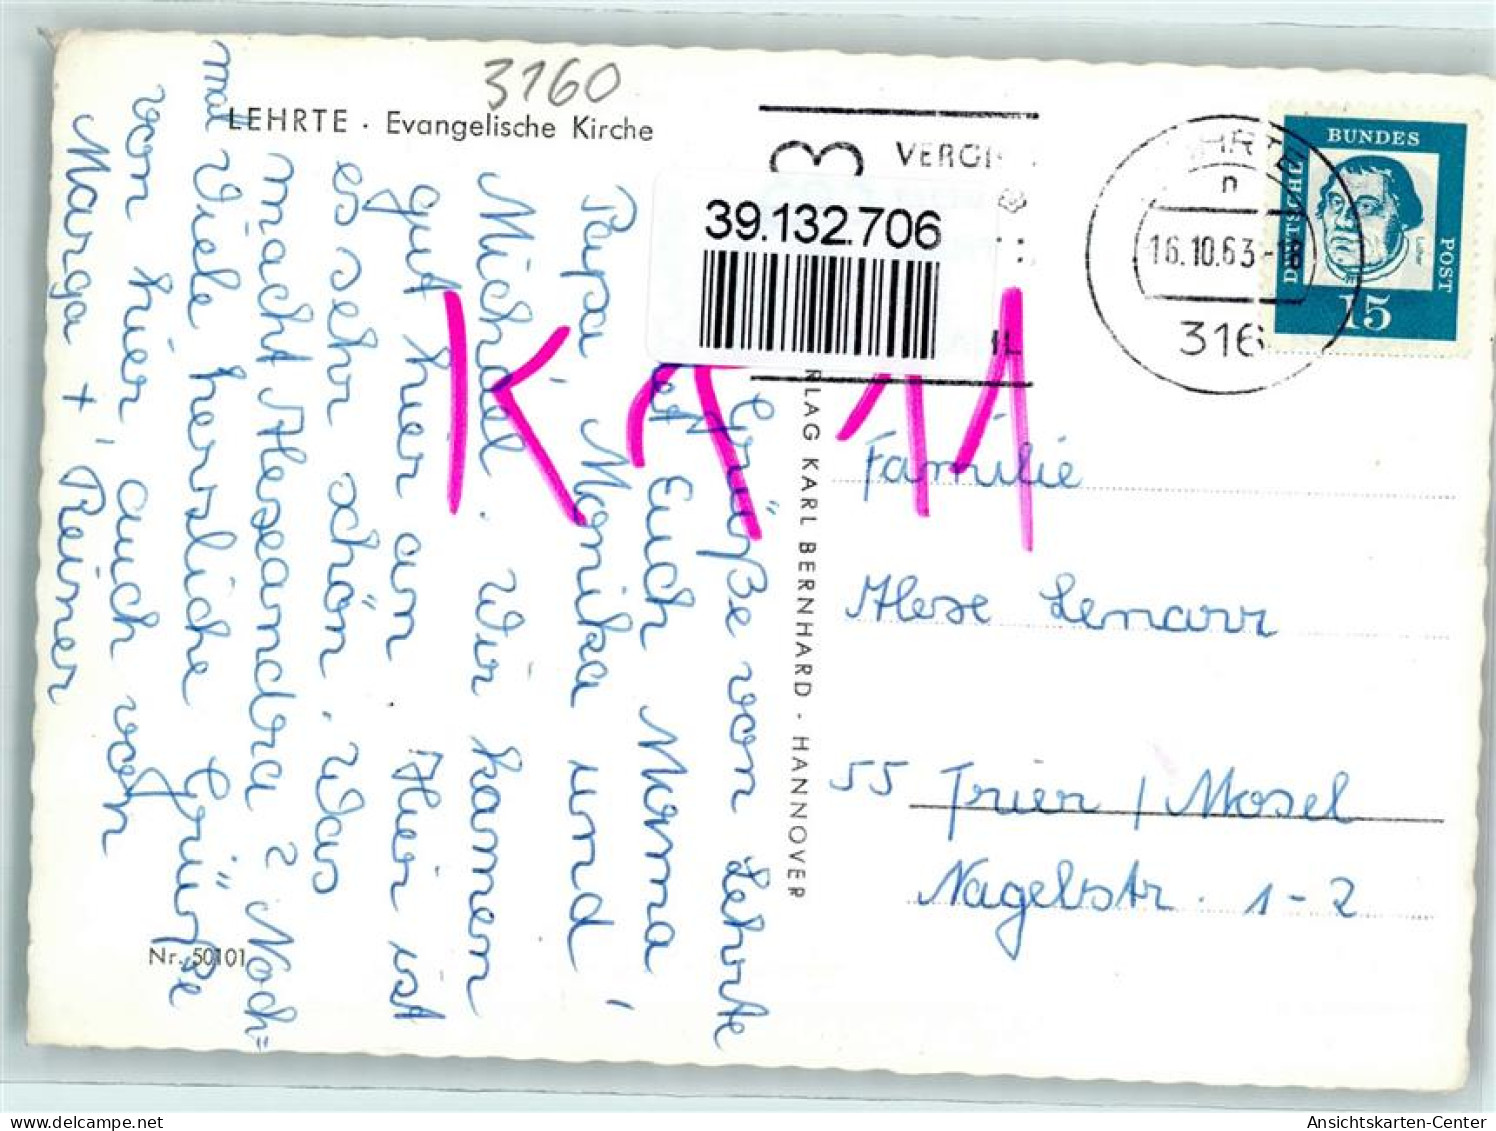 3160
LEHRTE . Evangelische Kirche
VERGI
39.132.706
HRTE
n
16.10.63-18
316
DEUTSCHE
BUNDES
POST
Luther
15
K 1 11
Grüße von Lehrte
Euch Mama
Papa, Monika und
Michael. Wir kamen
gut hier an. Hier ist
es sehr schön. Was
macht Alexandra? Noch=
mal viele herzliche Grüße
von hier, auch von
Marga + Reiner
Nr. 50101
RLAG KARL BERNHARD - HANNOVER
Familie
Alexe Lenarz
55 Trier / Mosel
Nagelstr. 1-2
Ansichtskarten-Center
www.delcampe.net